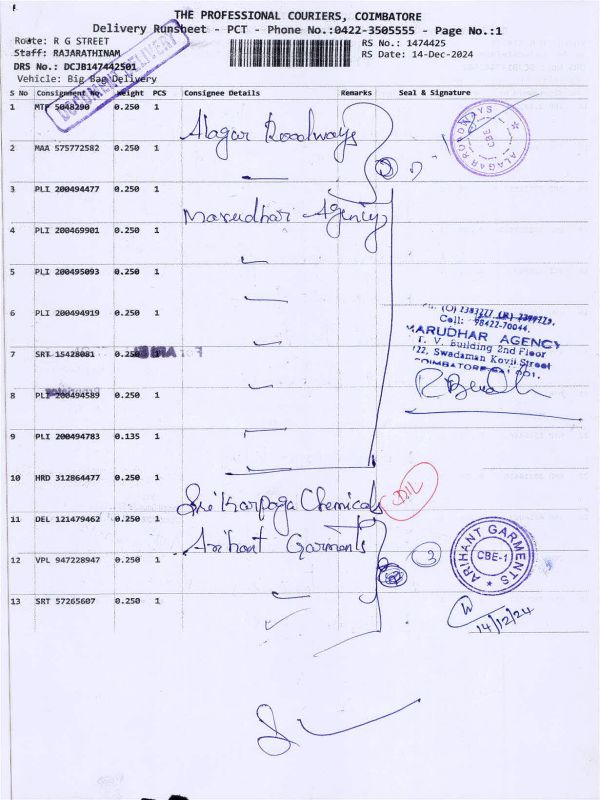 THE PROFESSIONAL COURIERS, COIMBATORE
Delivery Runsheet - PCT - Phone No.:0422-3505555 - Page No.:1
Route: R G STREET
RS No.: 1474425
Staff: RAJARATHINAM
RS Date: 14-Dec-2024
DRS No.: DCJB147442501
Vehicle: Big Bag Delivery
S No Consignment No Weight PCS Consignee Details Remarks Seal & Signature
1 MTP 5048290 0.250 1 Alagar Roadways
ALAGAR ROADWAYS CBE
2 MAA 575772582 0.250 1
3 PLI 200494477 0.250 1 Marudhar Agency
4 PLI 200469901 0.250 1
5 PLI 200495093 0.250 1
6 PLI 200494919 0.250 1
(O) 2383277 (R)
Cell: 98422-70044.
MARUDHAR AGENCY
T. V. Building 2nd Floor
122, Swadaman Kovil Street
COIMBATORE
7 SRT 15428081 0.250 1
8 PLI 200494589 0.250 1
9 PLI 200494783 0.135 1
10 HRD 312864477 0.250 1 Sri Karpaga Chemicals
11 DEL 121479462 0.250 1 Arihant Garments
ARIHANT GARMENTS CBE-1
12 VPL 947228947 0.250 1
3
13 SRT 57265607 0.250 1
14/12/24